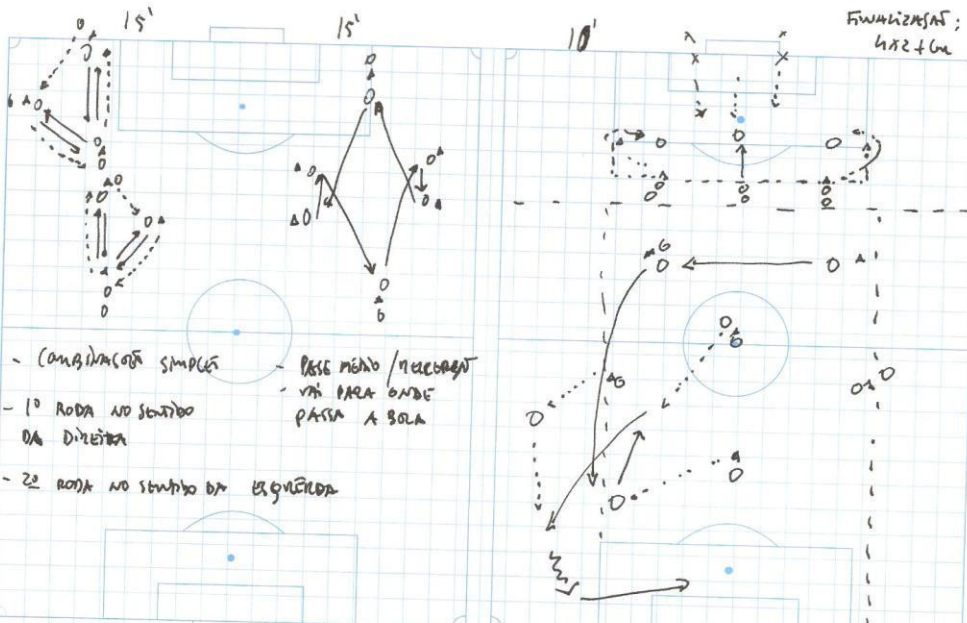 15'
15'
10'
FINALIZAÇÃO:
4x2+GR
- COMBINAÇÕES SIMPLES
- 1º RODA NO SENTIDO
DA DIREITA
- 2º RODA NO SENTIDO DA ESQUERDA
- PASSE MÉDIO / RECEÇÃO
- VAI PARA ONDE
PASSA A BOLA